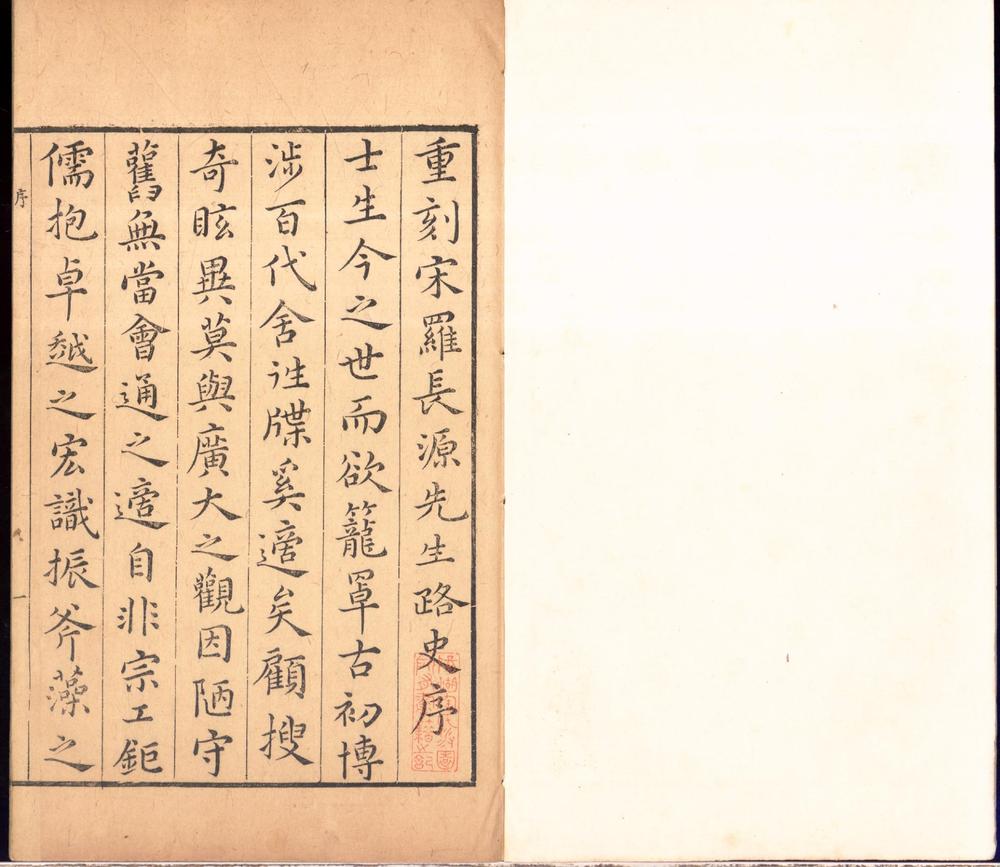 重刻宋羅長源先生路史序
士生今之世而欲籠罩古初博
涉百代舍往牒奚適矣顧搜
奇眩異莫與廣大之觀因陋守
舊無當會通之適自非宗工鉅
儒抱卓越之宏識振斧藻之
序
一